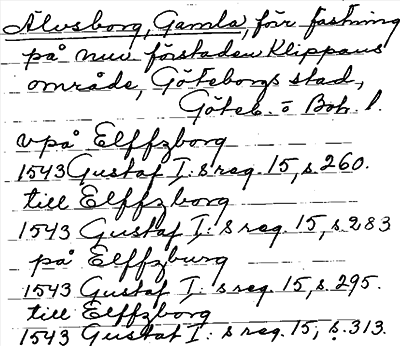 Älvsborg, Gamla, förr fästning
på nuv. förstaden Klippans
område, Göteborgs stad,
Göteb. o Boh. l.
vpå Elffzborg
1543 Gustaf I: s reg. 15, s. 260.
till Elffzborg
1543 Gustaf I: s reg. 15, s. 283
på Elffzburg
1543 Gustaf I: s reg. 15, s. 295.
till Elffzborg
1543 Gustaf I: s reg. 15, s. 313.